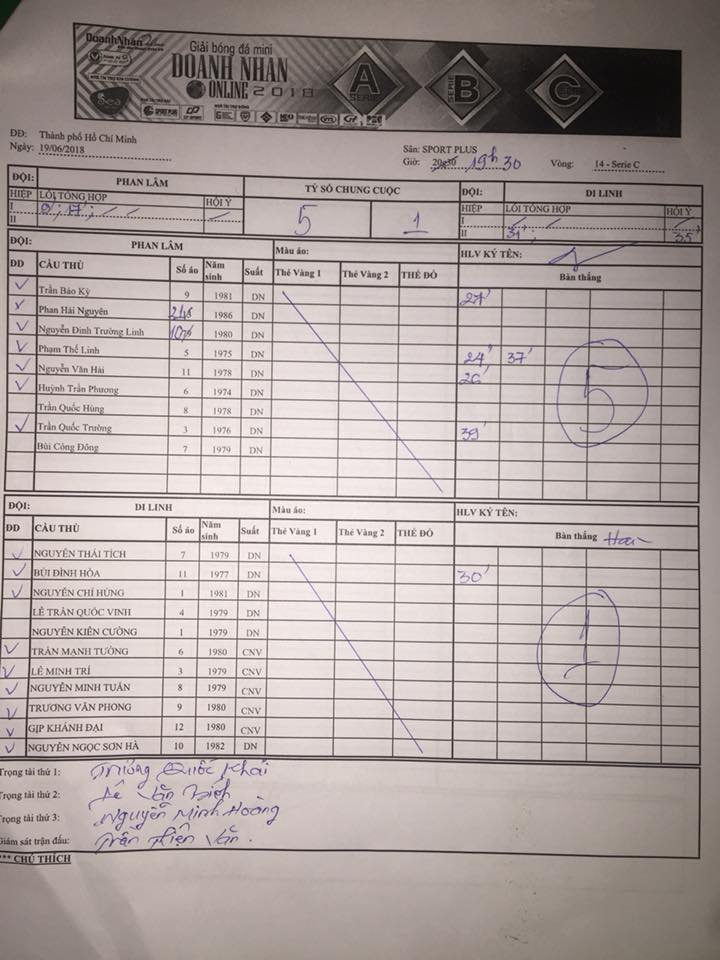 DoanhNhan
Giải bóng đá mini
DOANH NHAN
ONLINE 2018
A SERIE
B SERIE
C
Sea
SPORT PLUS
ĐĐ: Thành phố Hồ Chí Minh
Ngày: 19/06/2018
Sân: SPORT PLUS
Giờ: 20g30 19h30 Vòng: 14 - Serie C
ĐỘI: PHAN LÂM TỶ SỐ CHUNG CUỘC ĐỘI: DI LINH
HIỆP LỖI TỔNG HỢP HỘI Ý 5 1 HIỆP LỖI TỔNG HỢP HỘI Ý
I 17' I
II II 31' 35'
ĐỘI: PHAN LÂM Màu áo: HLV KÝ TÊN:
DD CẦU THỦ Số áo Năm sinh Suất Thẻ Vàng 1 Thẻ Vàng 2 THẺ ĐỎ Bàn thắng
Trần Bảo Kỳ 9 1981 DN 27'
Phan Hải Nguyên 1986 DN
Nguyễn Đình Trường Linh 1980 DN
Phạm Thế Linh 5 1975 DN 24' 37'
Nguyễn Văn Hải 11 1978 DN 26'
Huỳnh Trần Phương 6 1974 DN
Trần Quốc Hùng 8 1978 DN
Trần Quốc Trường 3 1976 DN 39'
Bùi Công Đông 7 1979 DN
5
ĐỘI: DI LINH Màu áo: HLV KÝ TÊN:
DD CẦU THỦ Số áo Năm sinh Suất Thẻ Vàng 1 Thẻ Vàng 2 THẺ ĐỎ Bàn thắng
NGUYỄN THÁI TÍCH 7 1979 DN
BÙI ĐÌNH HÒA 11 1977 DN 30'
NGUYỄN CHÍ HÙNG 1 1981 DN
LÊ TRẦN QUỐC VINH 4 1979 DN
NGUYỄN KIÊN CƯỜNG 1 1979 DN
TRẦN MẠNH TƯỜNG 6 1980 CNV
LÊ MINH TRÍ 3 1979 CNV
NGUYỄN MINH TUẤN 8 1979 CNV
TRƯƠNG VĂN PHONG 9 1980 CNV
GỊP KHÁNH ĐẠI 12 1980 CNV
NGUYỄN NGỌC SƠN HÀ 10 1982 DN
1
Trọng tài thứ 1: Trương Quốc Khải
Trọng tài thứ 2: Lê Văn
Trọng tài thứ 3: Nguyễn Minh Hoàng
Giám sát trận đấu: Trần Thiện Văn.
*** CHÚ THÍCH